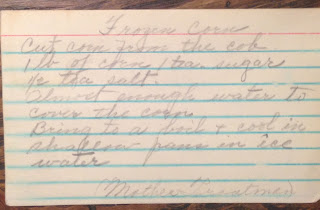 Frozen Corn
Cut corn from the cob
1 lb of corn 1 tea sugar
1/2 tea salt
Almost enough water to
cover the corn
Bring to a boil & cool in
shallow pans in ice
water
Mother